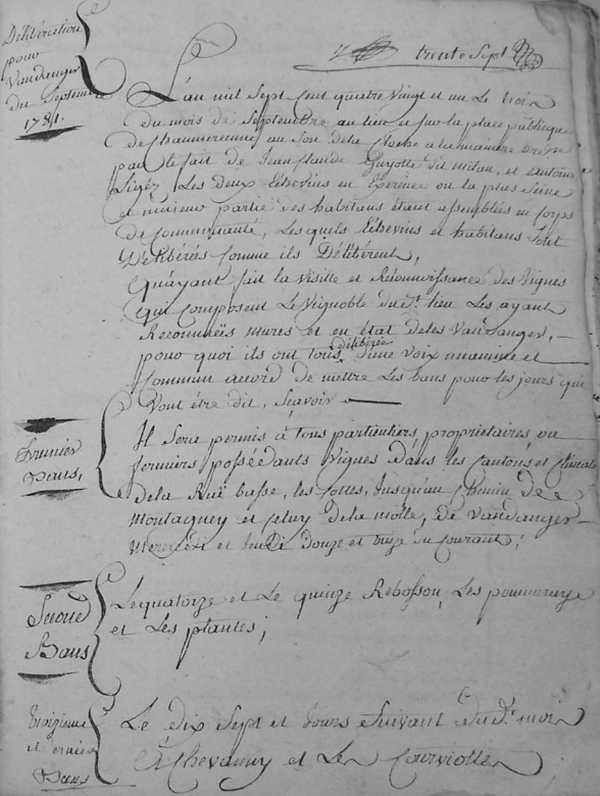 Délibération
pour
Vandanger
du Septembre
1781.
trente Sept
L'an mil Sept Cent quatre vingt et un Le trois
du mois de Septembre au lieu et sur la place publique
de Chaumercenne au Son dela Cloche a la maniere
par le fait de Jean Claude Guyotte dit milan, et antoine
Ligey Les deux Echevins en Exercice ou la plus Seine
et majeure partie des habitans étant assemblées en Corps
de Communauté, Lesquels Echevins et habitans Sont
Délibérés Comme ils Délibèrent,
Quayant fait la Visitte et Réconnoissance des Vignes
qui Composent Le Vignoble dudt. lieu Les ayant
Reconnuës mures et en état deles Vandanger, –
pour quoi ils ont tous délibérée d'une voix unanime et
Commun accord de mettre Les bans pour les jours qui
Vont être dit, Sçavoir
Premier
Bans,
Il Sera permis à tous particuliers, propriétaires ou
fermiers possédants Vignes dans les Cantons et Climats
dela Ruë basse, les Cottes, Jusqu'au Chemin de
Montagney et Celuy dela motte, de Vandanger
Mercredi et Jeudi Douze et treize du Courant;
Second
Bans
Lequatorze et Le quinze Rebosson, Les
et Les plantes;
Troizieme
et dernier
Bans
Le dix Sept et Jours Suivant dudt. mois
Et Le